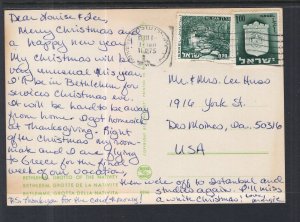 Dear Louise & Lee,
Merry Christmas and
a happy new year!
My Christmas will be
very unusual this year.
I'll be in Bethlehem for
services Christmas eve.
It will be hard to be away
from home. I got homesick
at Thanksgiving. Right
after Christmas my room-
mate and I are flying
to Greece for the final
week of our vacation,
then we're off to Istanbul and
studies again. I'll miss
a white Christmas!
PS. Thank you for the card & money
BETHLEHEM
BETHLEEM. GROTTE DE LA NATIVITE
BETHLEHEM. GROTTA DELLA NATIVITA
1975
0.70
1.00
ישראל
Mr. & Mrs. Lee Huss
1916 York St.
Des Moines, Ia. 50316
USA